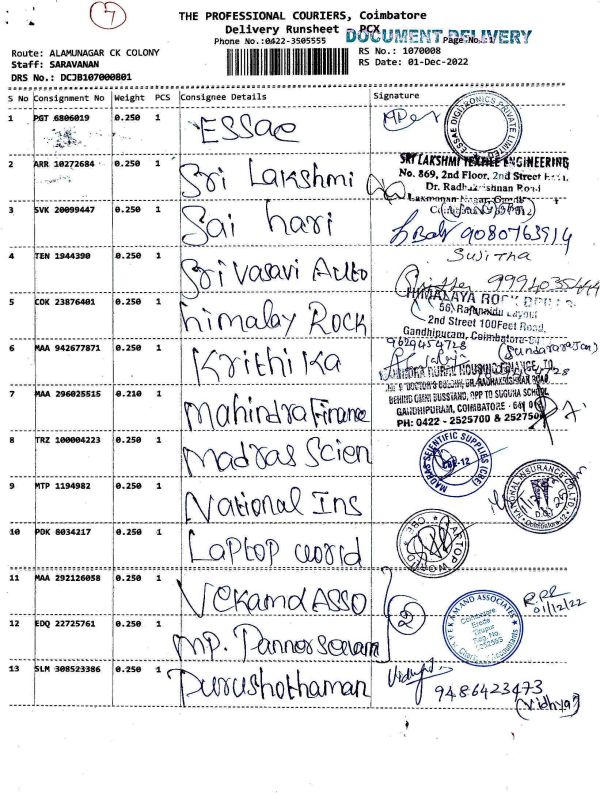 7
THE PROFESSIONAL COURIERS, Coimbatore
Delivery Runsheet PCX
DOCUMENT DELIVERY
Phone No.:0422-3505555 Page No.:1/
Route: ALAMUNAGAR CK COLONY RS No.: 1070008
Staff: SARAVANAN RS Date: 01-Dec-2022
DRS No.: DCJB107000801
S No Consignment No Weight PCS Consignee Details Signature
1 PGT 6806019 0.250 1 ESSae
ESSAE DIGITRONICS PRIVATE LIMITED
2 ARR 10272684 0.250 1 Sri Lakshmi
SRI LAKSHMI TEXTILE ENGINEERING
No. 869, 2nd Floor, 2nd Street
Dr. Radhakrishnan Road
3 SVK 20099447 0.250 1 Sai hari
9080763914
4 TEN 1944390 0.250 1 Sri Vasavi Auto
Sujitha
5 COK 23876401 0.250 1 himalay Rock
HIMALAYA ROCK
2nd Street 100Feet Road,
Gandhipuram, Coimbatore
6 MAA 942677871 0.250 1 Krithika
9629454728
(Sundararajan)
7 MAA 296025515 0.210 1 Mahindra Finance
RURAL HOUSING FINANCE
BEHIND OMNI BUSSTAND, OPP TO SUGUNA SCHOOL
GANDHIPURAM, COIMBATORE
PH: 0422 - 2525700 & 252750
8 TRZ 100004223 0.250 1 Madras Scien
MADRAS SCIENTIFIC SUPPLIES (CBE)
CBE-12
9 MTP 1194982 0.250 1 National Ins
NATIONAL INSURANCE CO. LTD
10 PDK 8034217 0.250 1 Laptop world
LAPTOP WORLD CBE
11 MAA 292126058 0.250 1 VekamdAsso
2
VEKAM AND ASSOCIATES
Coimbatore
Erode
Tirupur
Reg. No.
Chartered Accountants
01/12/22
12 EDQ 22725761 0.250 1 mp. Pannerselvam
13 SLM 308523386 0.250 1 Purushothaman
9486423473
(Vidhya)